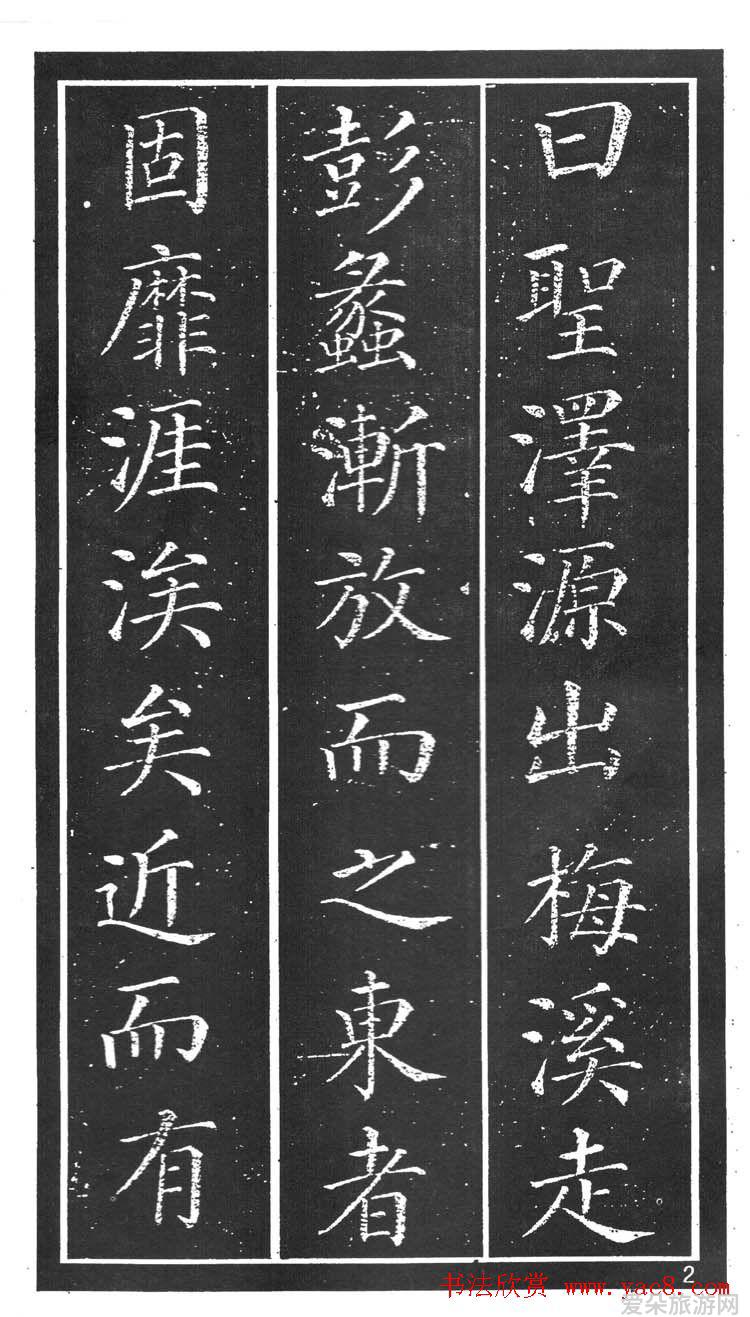 曰聖澤源出梅溪走
彭蠡漸放而之東者
固靡涯涘矣近而有
2
书法欣赏 www.yac8.com
爱朵旅游网